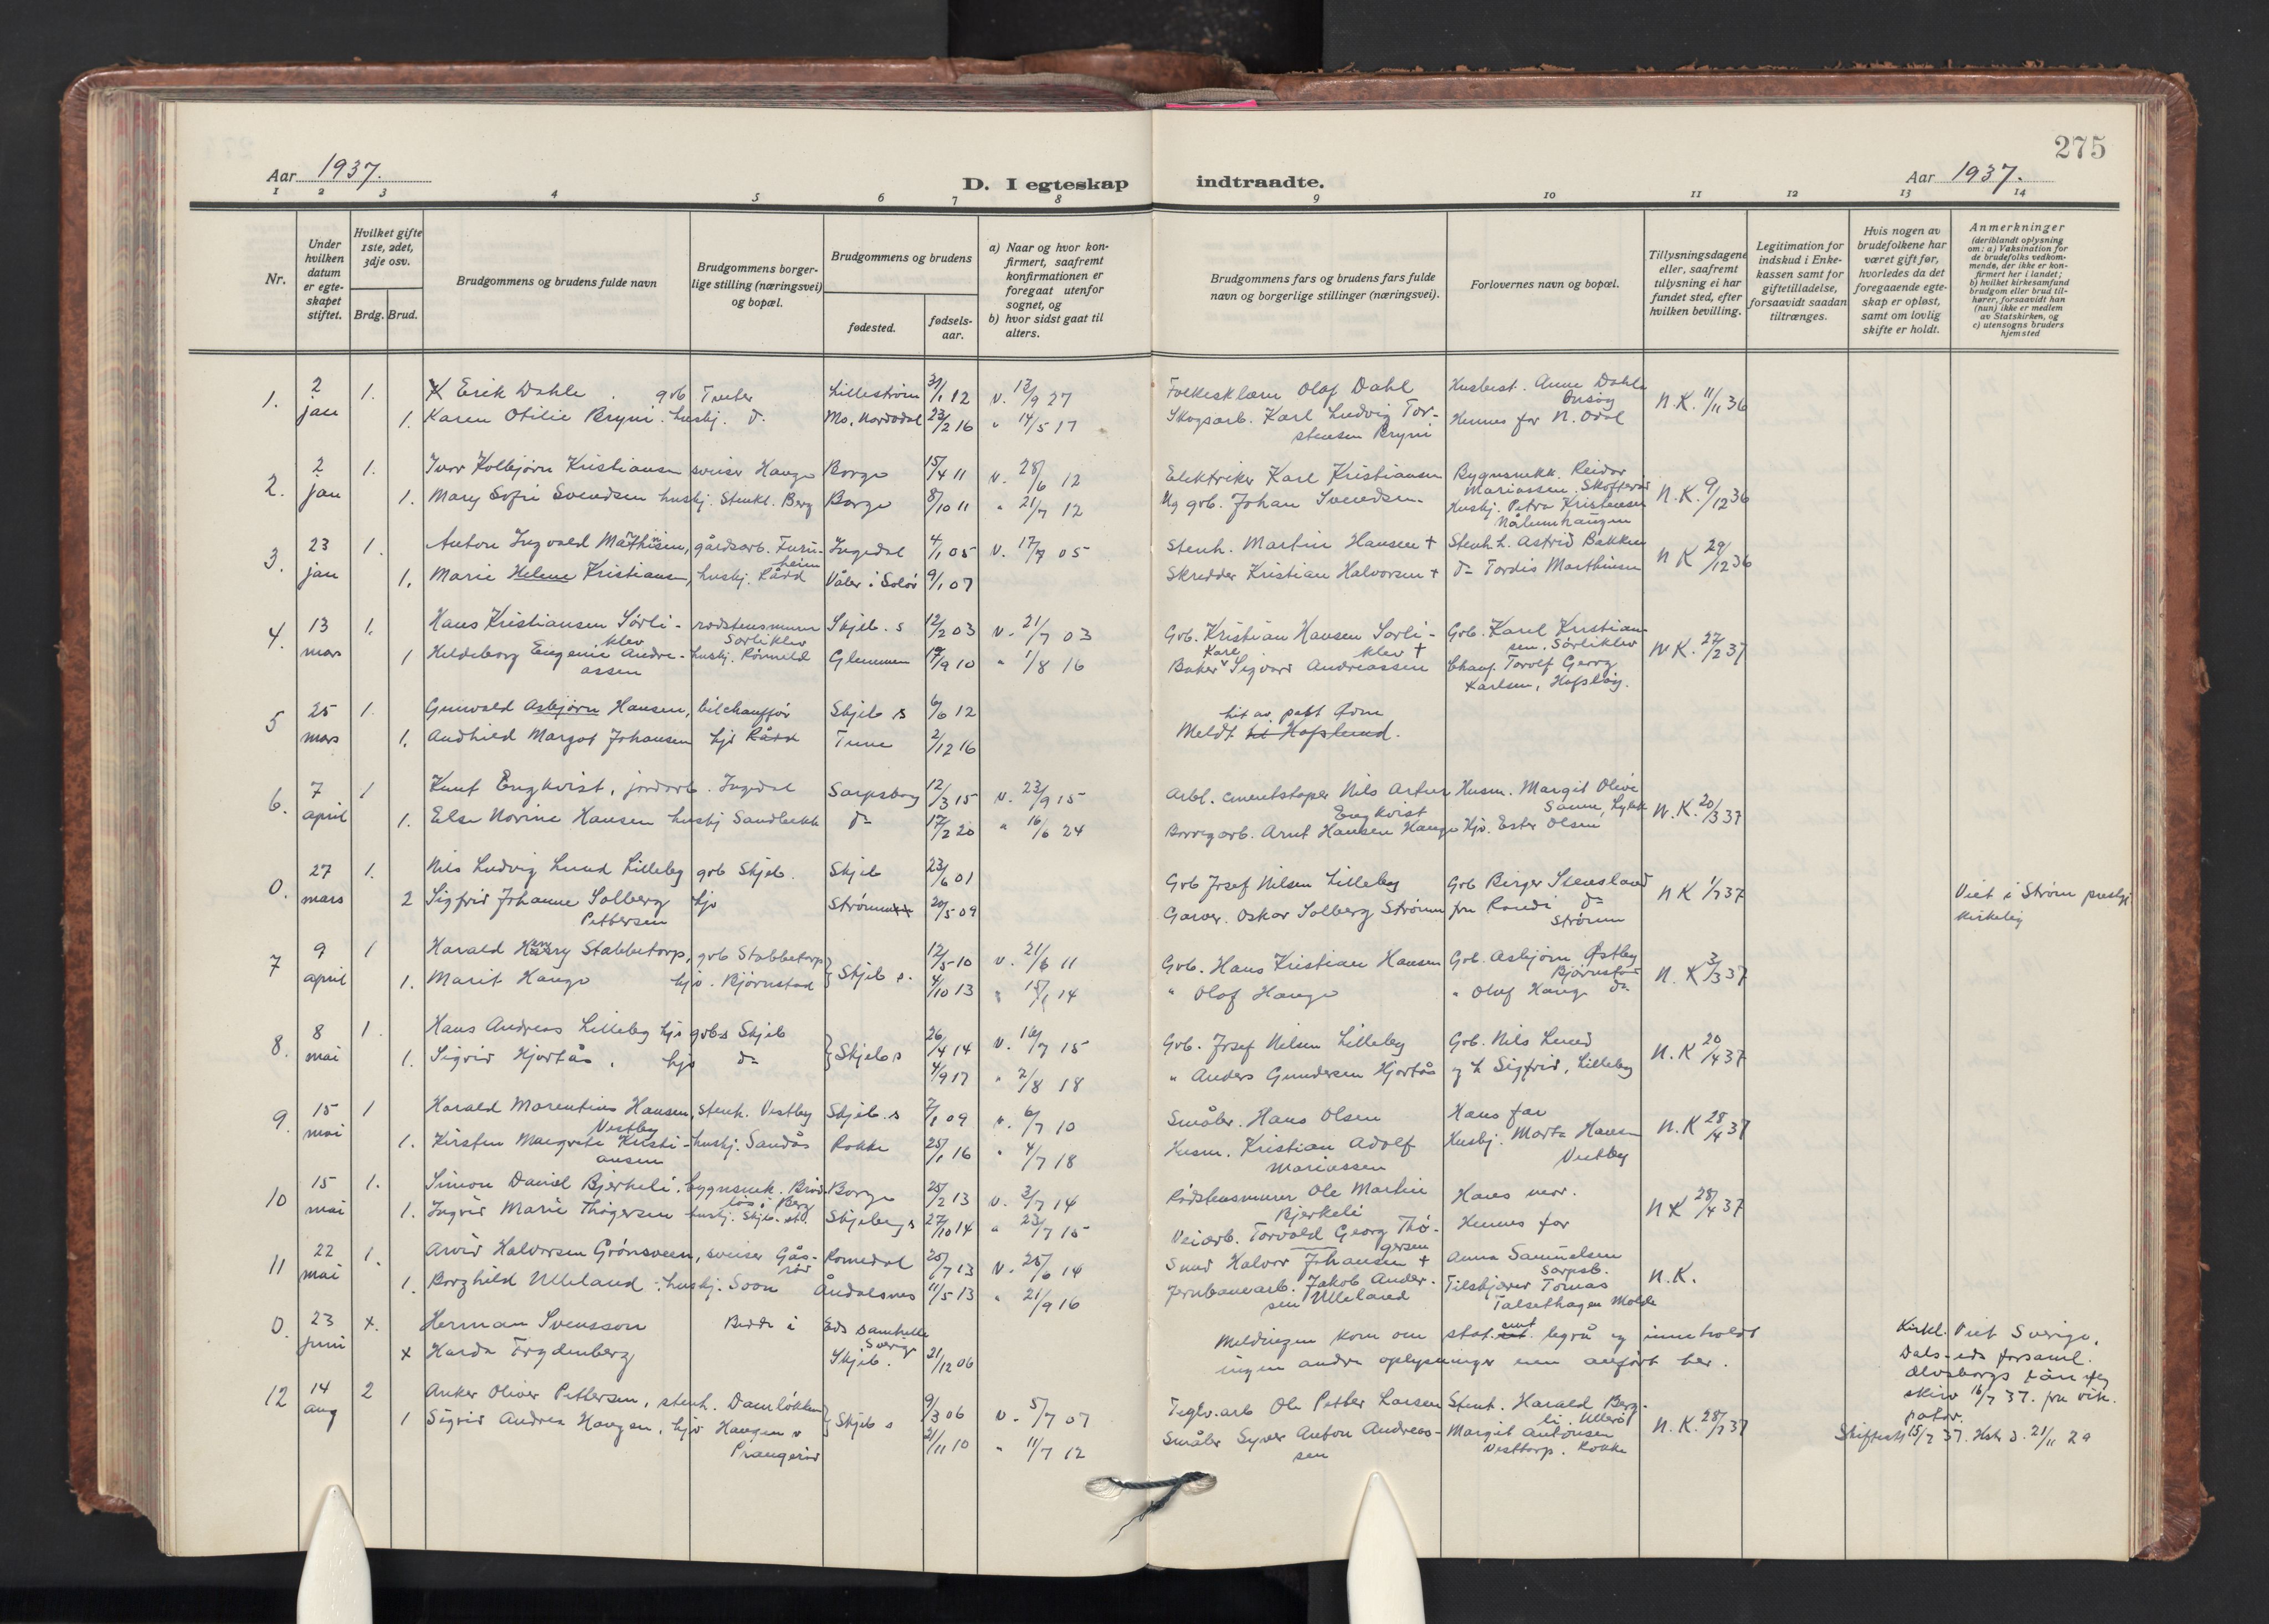 275
Aar 1937.
D. I egteskap indtraadte.
Aar 1937.
1 2 3 4 5 6 7 8 9 10 11 12 13 14
Nr.
Under hvilken datum er egteskapet stiftet.
Hvilket gifte 1ste, 2det, 3dje osv.
Brdg. Brud.
Brudgommens og brudens fulde navn
Brudgommens borgerlige stilling (næringsvei) og bopæl.
Brudgommens og brudens
fødested.
fødselsaar.
a) Naar og hvor konfirmert, saafremt konfirmationen er foregaat utenfor sognet, og
b) hvor sidst gaat til alters.
Brudgommens fars og brudens fars fulde navn og borgerlige stillinger (næringsvei).
Forlovernes navn og bopæl.
Tillysningsdagene eller, saafremt tillysning ei har fundet sted, efter hvilken bevilling.
Legitimation for indskud i Enkekassen samt for giftetilladelse, forsaavidt saadan tiltrænges.
Hvis nogen av brudefolkene har været gift før, hvorledes da det foregaaende egteskap er opløst, samt om lovlig skifte er holdt.
Anmerkninger (deriblandt oplysning om: a) Vaksination for de brudefolks vedkommende, der ikke er konfirmert her i landet; b) hvilket kirkesamfund brudgom eller brud tilhører, forsaavidt han (hun) ikke er medlem av Statskirken, og c) utensogns bruders hjemsted
1. 2 jan 1. Erik Dahle grb Lillestrøm 31/1 12 v. 13/9 27 Olaf Dahl Anne Dahle N.K. 11/11 36
1. Karen Otilie Bryni husbj. Mo, Nordodal 23/2 16 " 14/5 17 Skogsarb. Karl Ludvig Torstensen Bryni Hennes far N. Odal
2. 2 jan 1. Ivar Kolbjørn Kristiansen sveiser Hauge Borge 15/4 11 v. 28/6 12 Elektriker Karl Kristiansen Bygnsnekk. Reidar Mariassen N.K. 9/12 36
1. Mary Sofie Svendsen husbj. Stenkl. Berg Borge 8/10 11 " 21/7 12 grb. Johan Svendsen. Husbj. Petra Kristensen
3. 23 jan 1. Anton Ingvald Mathisen, gårdsarb. Furuheim Ingedal 4/1 05 v. 17/7 05 Stenh. Martin Hansen + Stenh. h. Astrid Bakken N K 29/12 36
1. Marie Helene Kristiansen, husbj. Rådd Våler i Solør 9/1 07 Skredder Kristian Halvorsen + do Tordis Marthinsen
4. 13 mars 1. Hans Kristiansen Sørliklev rødstensmurer Sørliklev Skjeb. s 12/2 03 v. 21/7 03 Grb. Kristian Hansen Sørliklev + Grb. Karel Kristiansen, Sørliklev N K. 27/2 37
1 Hildeborg Eugenie Andreassen husbj. Glemmen 17/9 10 " 1/8 16 Baker Kare Sigvard Andreassen Chauf. Torolf Georg Karlsen,
5 25 mars 1. Gunvald Asbjørn Hansen, bilchauffør Skjeb s 6/6 12
1. Audhild Margot Johansen hjs Rådd Tune 2/12 16 Meldt til Hafslund.
6. 7 april 1 Knut Engkvist, jordarb. Ingedal Sarpsborg 12/3 15 v. 23/9 15 Arbf. cementstøper Nils Artur Engkvist Husm. Margit Olive N.K. 20/3 37
1. Else Norine Hansen husbj Sandbekk do 17/2 20 " 16/6 24 Borregarb. Arnt Hansen Hauge Hjs. Ester Olsen
0. 27 mars 1. Nils Ludvig Lund Lilleby grb Skjeb. Skjeb 23/6 01 Grb Josef Nilsen Lilleby Grb Birger Stensland N K 1/7 37 Viet i Strøm prestgj kirkelig
2 Sigfrid Johanne Solberg Pettersen hjs Strømm 20/5 09 Garver. Oskar Solberg Strømm fru Randi do Strømm
7 9 april 1 Harald Harry Stabbetorp, grb Stabbetorp } Skjeb s. 12/5 10 v. 21/6 11 Grb. Hans Kristian Hansen Grb. Asbjørn Østby Bjørnstad N. K 3/3 37
1. Marit Hauge hjs. Bjørnstad 4/10 13 14 " Olaf Hauge " Olaf Hauge do
8. 8 mai 1. Hans Andreas Lilleby hjs grbs Skjeb } Skjeb s 26/4 14 v. 16/7 15 Grb. Josef Nilsen Lilleby Grb. Nils Lund N.K 20/4 37
1. Sigrid Hjortås, hjs do 4/9 17 " 2/8 18 " Anders Gundersen Hjortås og h Sigfrid, Lilleby
9. 15 mai 1 Harald Marentius Hansen, Vestby stenh. Vestby Skjeb. s 7/1 09 v. 6/7 10 Småbr. Hans Olsen Hans far N.K 28/4 37
1. Kirsten Margrete Kristiansen husbj. Sandås Rokke 25/1 16 " 4/7 18 Husm. Kristian Adolf Mariassen Husbj. Marta Hansen Vestby
10 15 mai 1. Simon Daniel Bjerkeli, bygnsnek. Borge 25/2 13 v. 2/7 14 Rødstensmurer Ole Martin Bjerkeli Hans mor. N K 28/4 37
1. Ingrid Marie Thøgersen husbj. Skjeb. st. Skjeberg s 27/10 14 " 23/7 15 Veiarb. Torvald Georg Thøgersen Hennes far
11 22 mai 1. Arvid Halvorsen Grønsveen, sveiser Gåsrød Romedal 25/7 13 v. 25/6 14 Smed Halvor Johansen + Anna Samuelsen Sarpsb. N.K.
1. Borghild Ulleland husbj. Soon Åndalsnes 11/5 13 " 21/9 16 Jernbanearb. Jakob Andersen Ulleland Tilskjærer Tomas Talsethagen Molde
0. 23 juni x. Herman Svensson Bedde i Eds Sverige Meldingen kom om stat. cent. byrå og inneholdt Kirkl. Viet Sverige, Dals-eds forsaml. Elvsborgs län
x Harda Frydenberg Skjeb. 21/12 06 ingen andre oplysninger enn anført her. skriv 16/7 37. fra
12 14 aug 2 Anker Oliver Pettersen, stenh. Damløkken } Skjeb s 9/3 06 v. 5/7 07 Teglv.arb Ole Petter Larsen Stenh. Harald Bergli. Ullerøl N.K. 28/7 37 Skifteatt 15/7 37. 21/11 29
1 Sigrid Andrea Haugen, hjs Haugen v Prangerød 21/11 10 " 11/7 12 Småbr Syver Anton Andreassen Margit Antonsen Vesttorp. Rokke